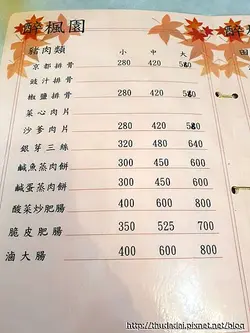 醉楓園
豬肉類 小 中 大
京都排骨 280 420 580
豉汁排骨
椒鹽排骨 280 420 580
菜心肉片
沙爹肉片 280 420 580
銀芽三絲 320 480 640
鹹魚蒸肉餅 300 450 600
鹹蛋蒸肉餅 300 450 600
酸菜炒肥腸 400 600 800
脆皮肥腸 350 525 700
滷大腸 400 600 800
醉
田
http://thudadai.pixnet.net/blog